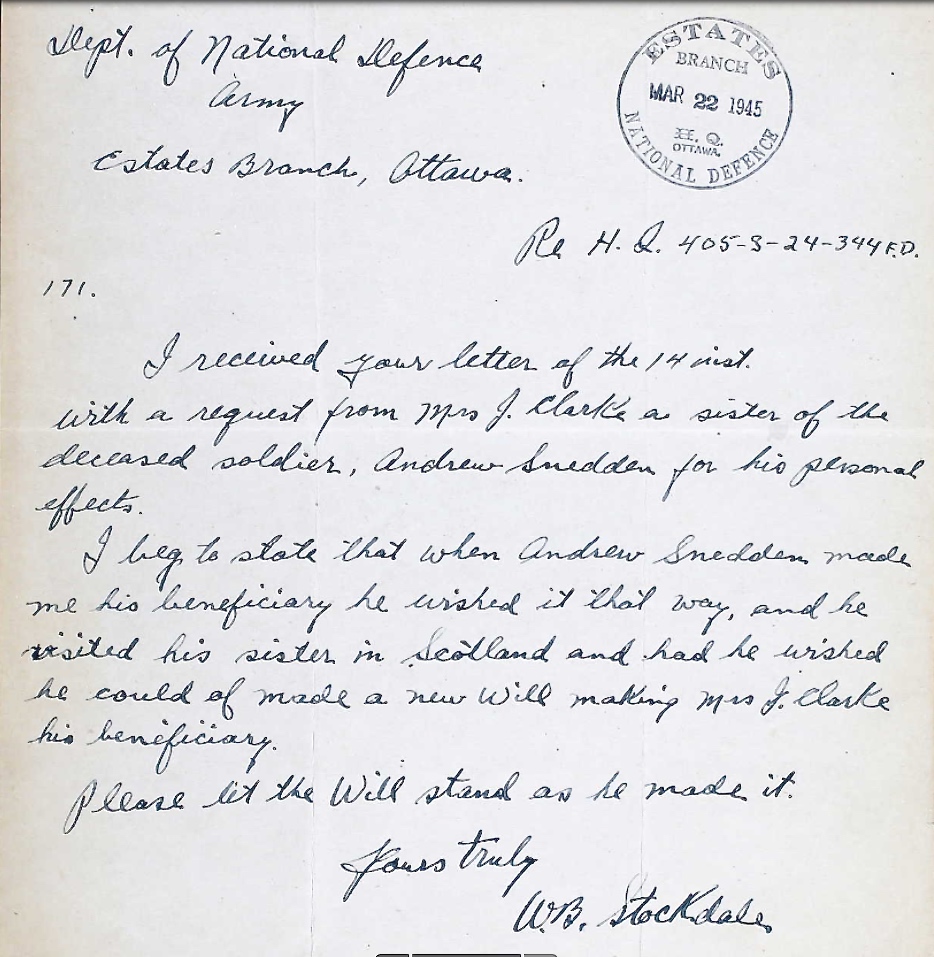 Dept. of National Defence
Army
Estates Branch, Ottawa.
ESTATES
BRANCH
MAR 22 1945
H. Q.
OTTAWA.
NATIONAL DEFENCE
Re H. Q. 405-S-24-344 F.D.
171.
I received your letter of the 14 inst.
with a request from Mrs J. Clarke a sister of the
deceased soldier, Andrew Snedden for his personal
effects.
I beg to state that when Andrew Snedden made
me his beneficiary he wished it that way, and he
visited his sister in Scotland and had he wished
he could of made a new Will making Mrs J. Clarke
his beneficiary.
Please let the Will stand as he made it.
Yours truly
W.B. Stockdale